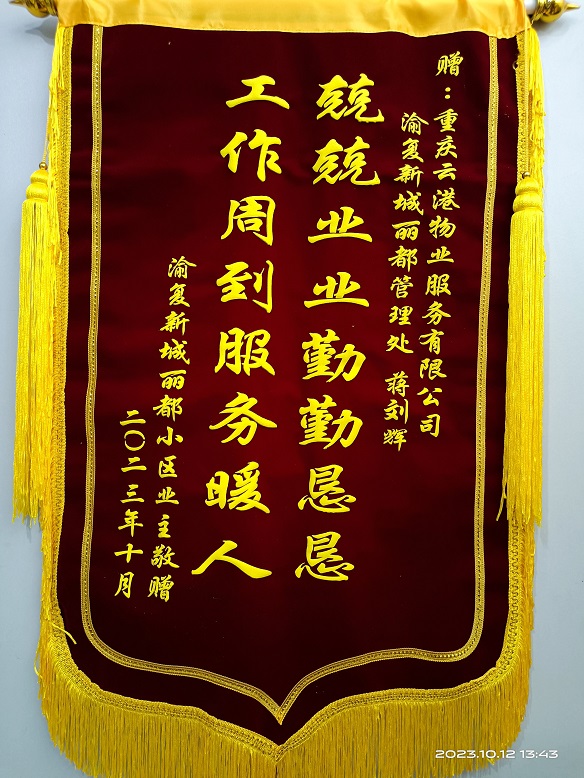 赠：重庆云港物业服务有限公司
渝复新城丽都管理处 蒋刘辉
兢兢业业勤勤恳恳
工作周到服务暖人
渝复新城丽都小区业主敬赠
二〇二三年十月
2023.10.12 13:43